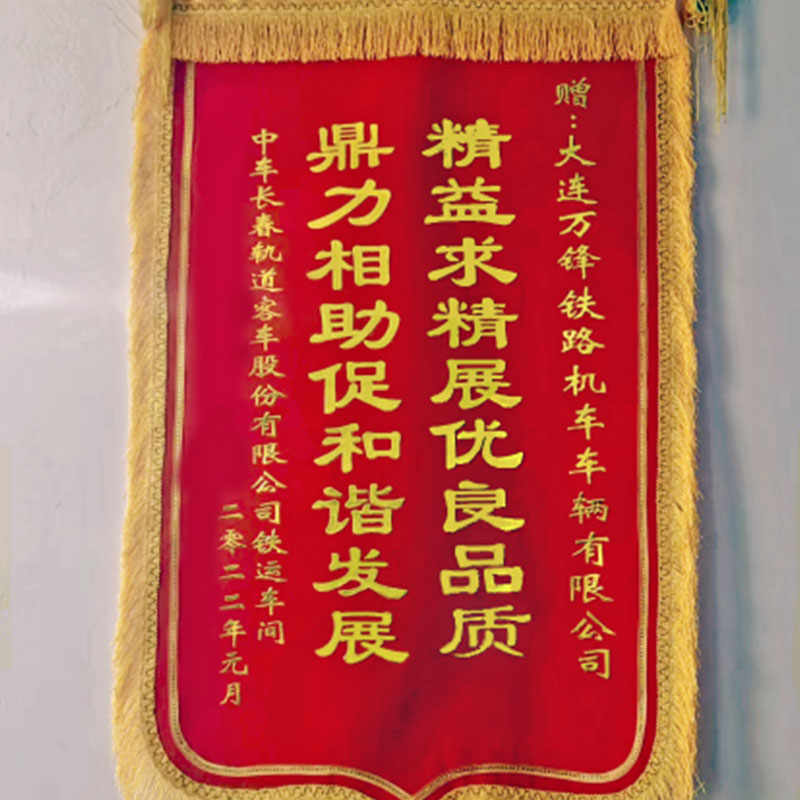 赠：大连万锋铁路机车车辆有限公司
精益求精展优良品质
鼎力相助促和谐发展
中车长春轨道客车股份有限公司铁运车间
二零二二年元月